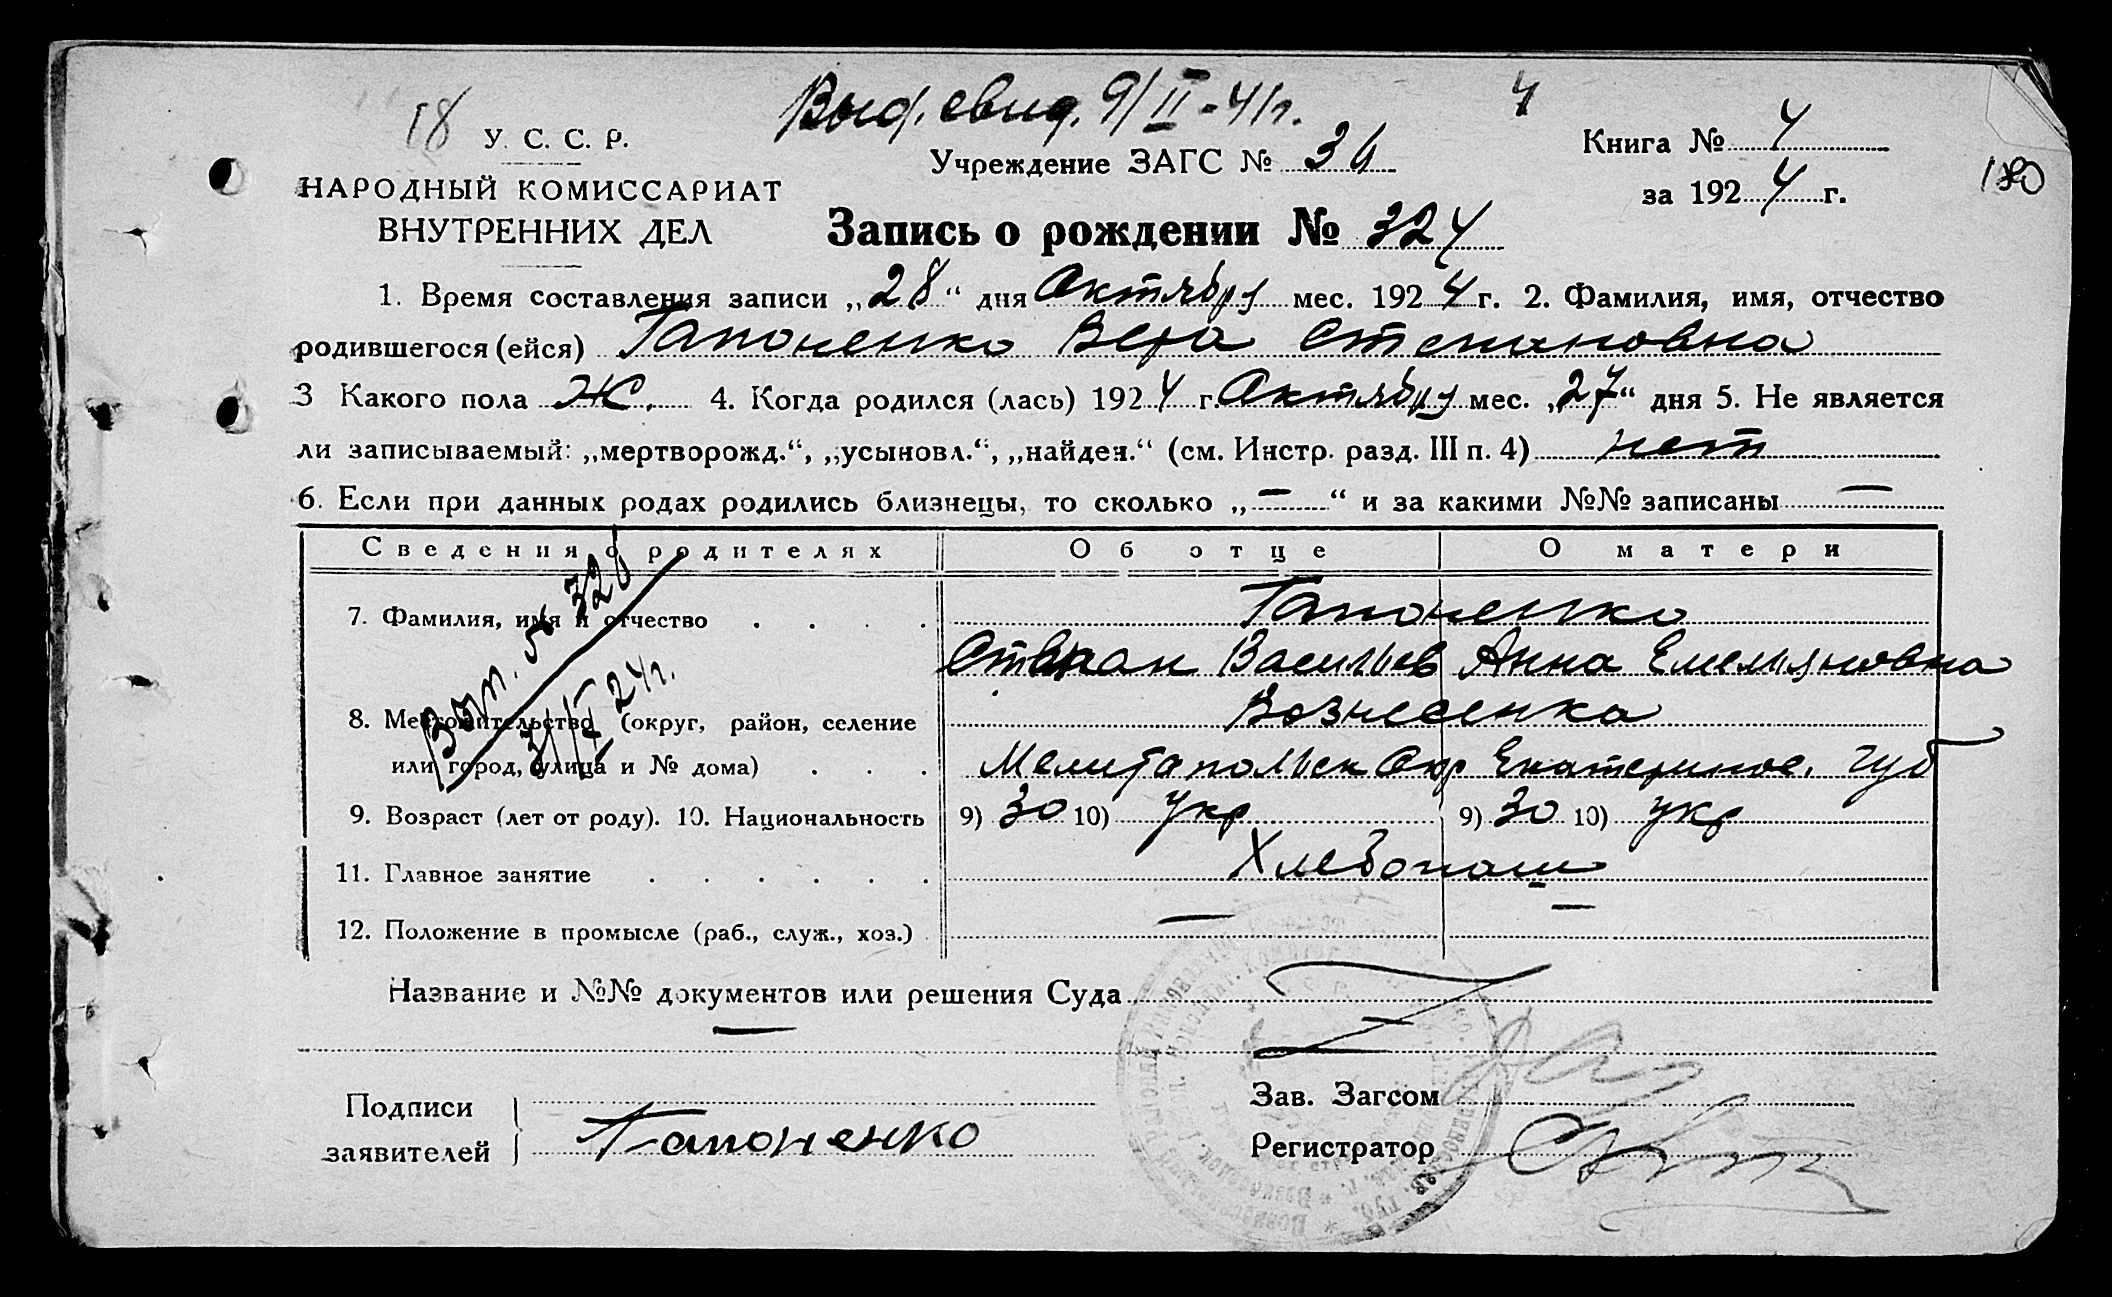 18
Выд. свид. 9/II-41г.
4
У. С. С. Р.
НАРОДНЫЙ КОМИССАРИАТ
ВНУТРЕННИХ ДЕЛ
Учреждение ЗАГС № 36
Книга № 4
за 1924 г.
180
Запись о рождении № 324
1. Время составления записи „28“ дня Октября мес. 1924 г. 2. Фамилия, имя, отчество
родившегося (ейся) Гапоненко Вера Степановна
3 Какого пола Ж. 4. Когда родился (лась) 1924 г. Октября мес. „27“ дня 5. Не является
ли записываемый: „мертворожд.“, „усыновл.“, „найден.“ (см. Инстр. разд. III п. 4) нет
6. Если при данных родах родились близнецы, то сколько „—“ и за какими №№ записаны —
Сведения о родителях Об отце О матери
7. Фамилия, имя и отчество Гапоненко
Степан Васильев Анна Емельяновна
8. Местожительство (округ, район, селение Вознесенка
или город, улица и № дома) Мелитопольск Окр Екатеринос. губ
9. Возраст (лет от роду). 10. Национальность 9) 30 10) укр 9) 30 10) укр
11. Главное занятие Хлебопаш
12. Положение в промысле (раб., служ., хоз.) — —
328
24г.
Название и №№ документов или решения Суда —
—
Подписи
заявителей Гапоненко
Зав. Загсом
Регистратор